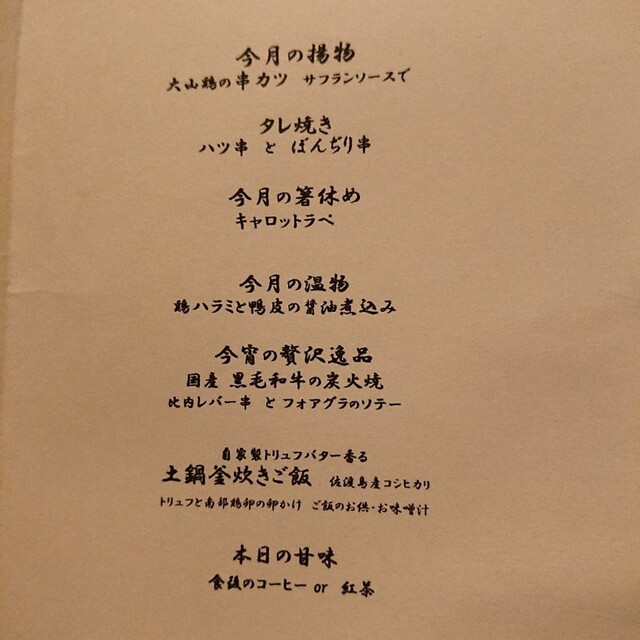 今月の揚物
大山鶏の串カツ サフランソースで
タレ焼き
ハツ串 と ぼんぢり串
今月の箸休め
キャロットラペ
今月の温物
鶏ハラミと鴨皮の醤油煮込み
今宵の贅沢逸品
国産 黒毛和牛の炭火焼
比内レバー串 と フォアグラのソテー
自家製トリュフバター香る
土鍋釜炊きご飯 佐渡島産コシヒカリ
トリュフと南部鶏卵の卵かけ ご飯のお供・お味噌汁
本日の甘味
食後のコーヒー or 紅茶